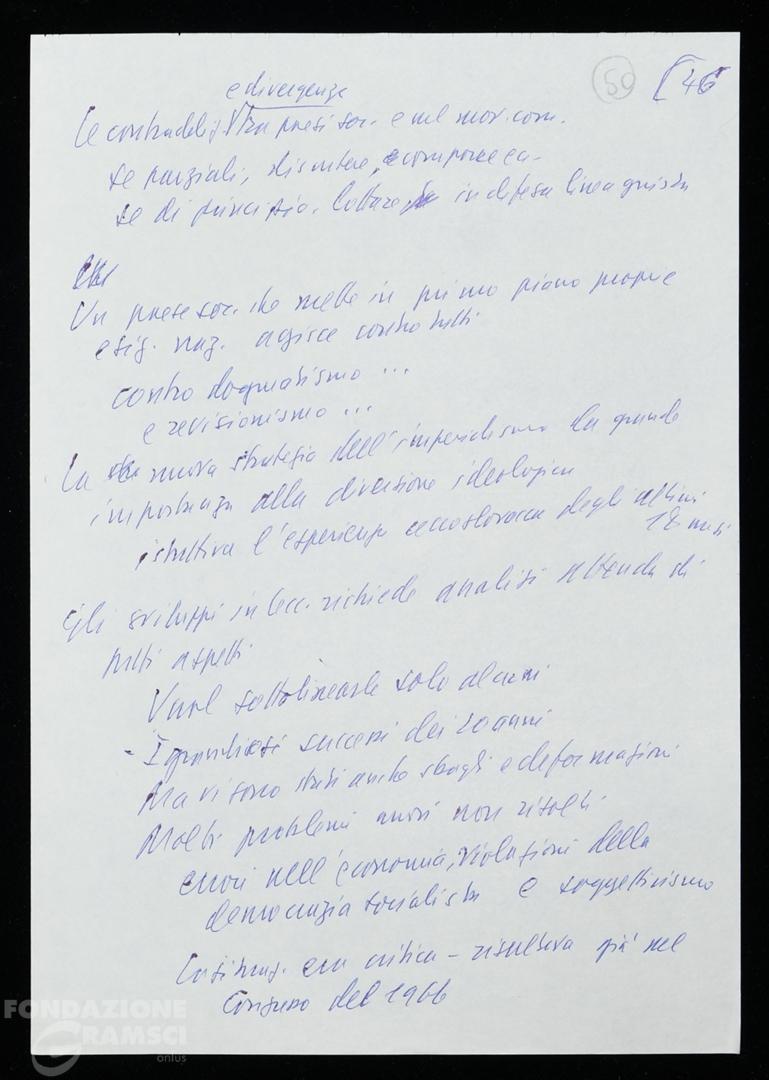 50 [46
e divergenze
Le contraddiz. tra paesi soc. e nel mov. com.
se parziali, discutere, e comporre ecc.
se di principio. Lottare in difesa linea giusta
Un paese soc. che mette in primo piano proprie
esig. naz. agisce contro tutti
contro dogmatismo ...
e revisionismo ...
La nuova strategia dell'imperialismo da grande
importanza alla diversione ideologica
istruttiva l'esperienza cecoslovacca degli ultimi
18 mesi
Gli sviluppi in Cec. richiede analisi attenta di
tutti aspetti
Vuol sottolinearle solo alcuni
- I grandiosi successi dei 20 anni
Ma vi sono stati anche sbagli e deformazioni
Molti problemi nuovi non risolti
errori nell'economia, violazioni della
democrazia socialista e soggettivismo
La situaz. era critica - risultava già nel
Congresso del 1966
FONDAZIONE
GRAMSCI
onlus